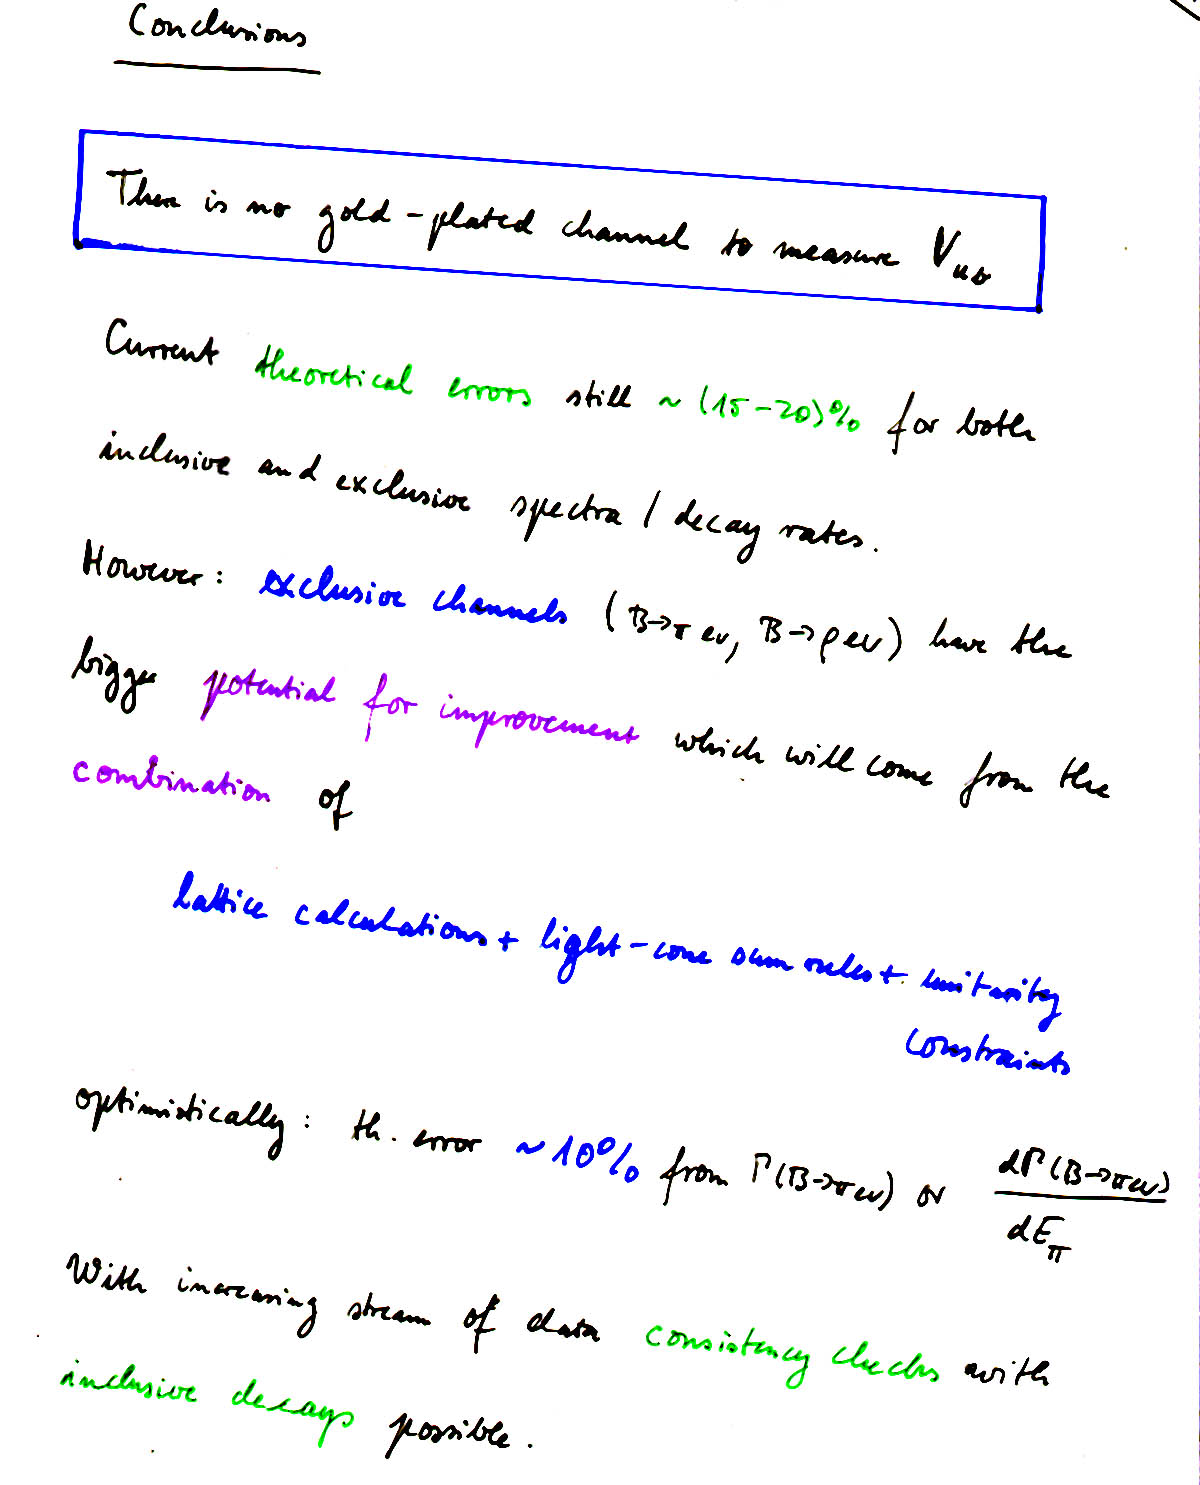 Conclusions
There is no gold-plated channel to measure V_ub
Current theoretical errors still ~ (15-20)% for both
inclusive and exclusive spectra / decay rates.
However: exclusive channels (B→π eν, B→ρ eν) have the
bigger potential for improvement which will come from the
combination of
lattice calculations + light-cone sum rules + unitarity
constraints
optimistically: th. error ~10% from Γ(B→π eν) or dΓ(B→π eν)
dE_π
With increasing stream of data consistency checks with
inclusive decays possible.